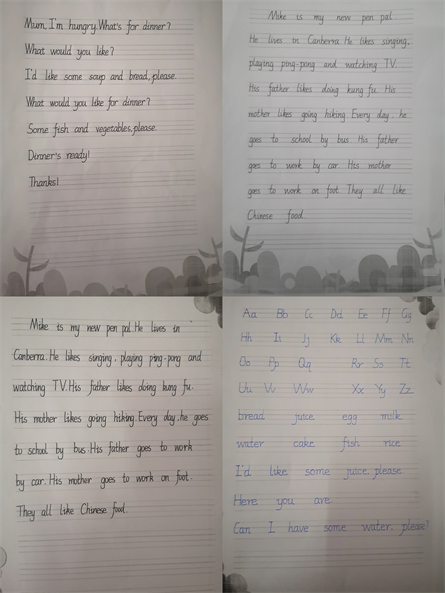 Mum, I'm hungry. What's for dinner?
What would you like?
I'd like some soup and bread, please.
What would you like for dinner?
Some fish and vegetables, please.
Dinner's ready!
Thanks!
Mike is my new pen pal.
He lives in Canberra. He likes singing,
playing ping-pong and watching TV.
His father likes doing kung fu. His
mother likes going hiking. Every day, he
goes to school by bus. His father
goes to work by car. His mother
goes to work on foot. They all like
Chinese food
Mike is my new pen pal. He lives in
Canberra. He likes singing, playing ping-pong and
watching TV. His father likes doing kung fu.
His mother likes going hiking. Every day, he goes
to school by bus. His father goes to work
by car. His mother goes to work on foot.
They all like Chinese food.
Aa Bb Cc Dd Ee Ff Gg
Hh Ii Jj Kk Ll Mm Nn
Oo Pp Qq Rr Ss Tt
Uu Vv Ww Xx Yy Zz
bread juice egg milk
water cake fish rice
I'd like some juice, please.
Here you are.
Can I have some water, please?